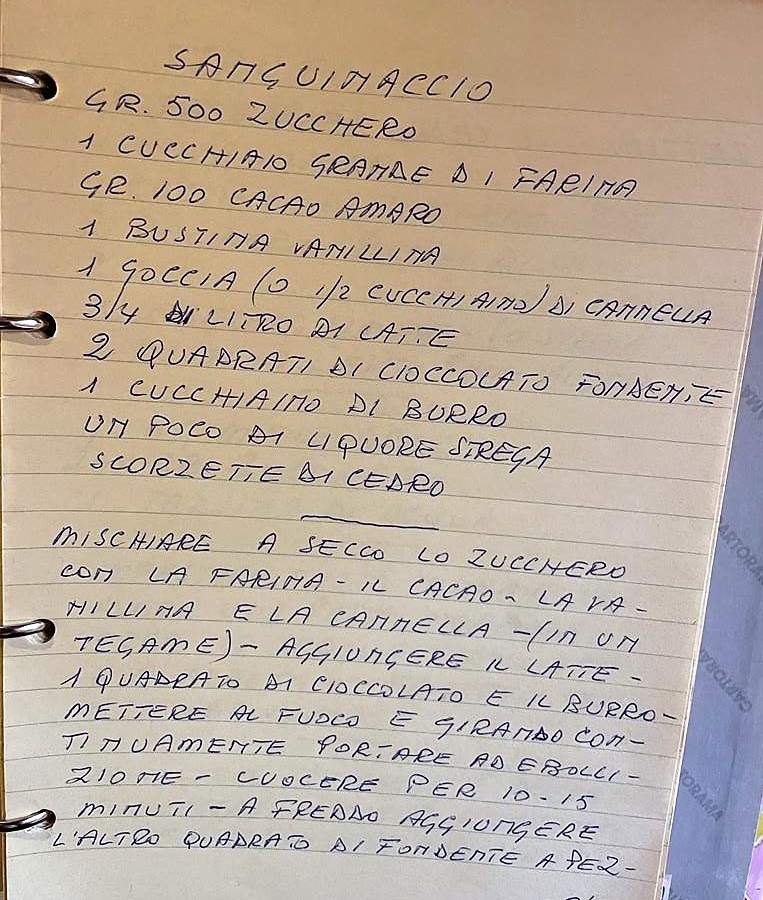 SANGUINACCIO
GR. 500 ZUCCHERO
1 CUCCHIAIO GRANDE DI FARINA
GR. 100 CACAO AMARO
1 BUSTINA VANILLINA
1 GOCCIA (O 1/2 CUCCHIAINO) DI CANNELLA
3/4 DI LITRO DI LATTE
2 QUADRATI DI CIOCCOLATO FONDENTE
1 CUCCHIAINO DI BURRO
UN POCO DI LIQUORE STREGA
SCORZETTE DI CEDRO
MISCHIARE A SECCO LO ZUCCHERO
CON LA FARINA - IL CACAO - LA VA-
NILLINA E LA CANNELLA - (IN UN
TEGAME) - AGGIUNGERE IL LATTE -
1 QUADRATO DI CIOCCOLATO E IL BURRO -
METTERE AL FUOCO E GIRANDO CON-
TINUAMENTE PORTARE AD EBOLLI-
ZIONE - CUOCERE PER 10-15
MINUTI - A FREDDO AGGIUNGERE
L'ALTRO QUADRATO DI FONDENTE A PEZ-